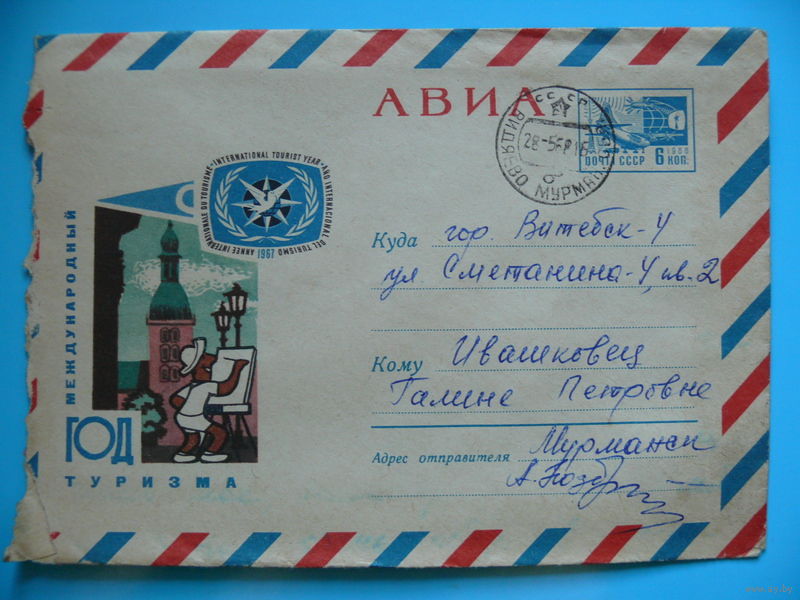 АВИА
СССР
28-5
МУРМ
1966
ПОЧТА СССР 6 КОП.
INTERNATIONAL TOURIST YEAR • AÑO INTERNACIONAL DEL TURISMO
ANNEE INTERNATIONALE DU TOURISME •
1967
МЕЖДУНАРОДНЫЙ
ГОД
ТУРИЗМА
Куда гор. Витебск-4
ул. Сметанина-4, кв. 2
Кому Ивашковец
Галине Петровне
Адрес отправителя Мурманск
www.ay.by